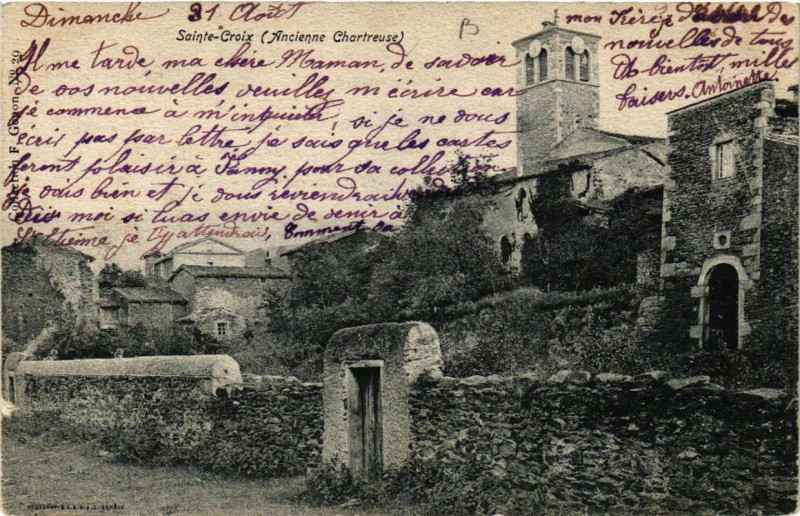 Dimanche 31 Août
Sainte-Croix (Ancienne Chartreuse)
B
Il me tarde ma chère Maman, de savoir
de vos nouvelles veuillez m'écrire car
je commence à m'inquiéter, si je ne vous
écris pas par lettre, je sais que les cartes
feront plaisir à Fanny, pour sa collection
je vais bien et je vous reviendrai
Dis moi si tu as envie de venir à
St Etienne je t'y attendrais, Comment va
mon Frère des
nouvelles de tous
A bientôt, milles
baisers. Antoinette.
No 20